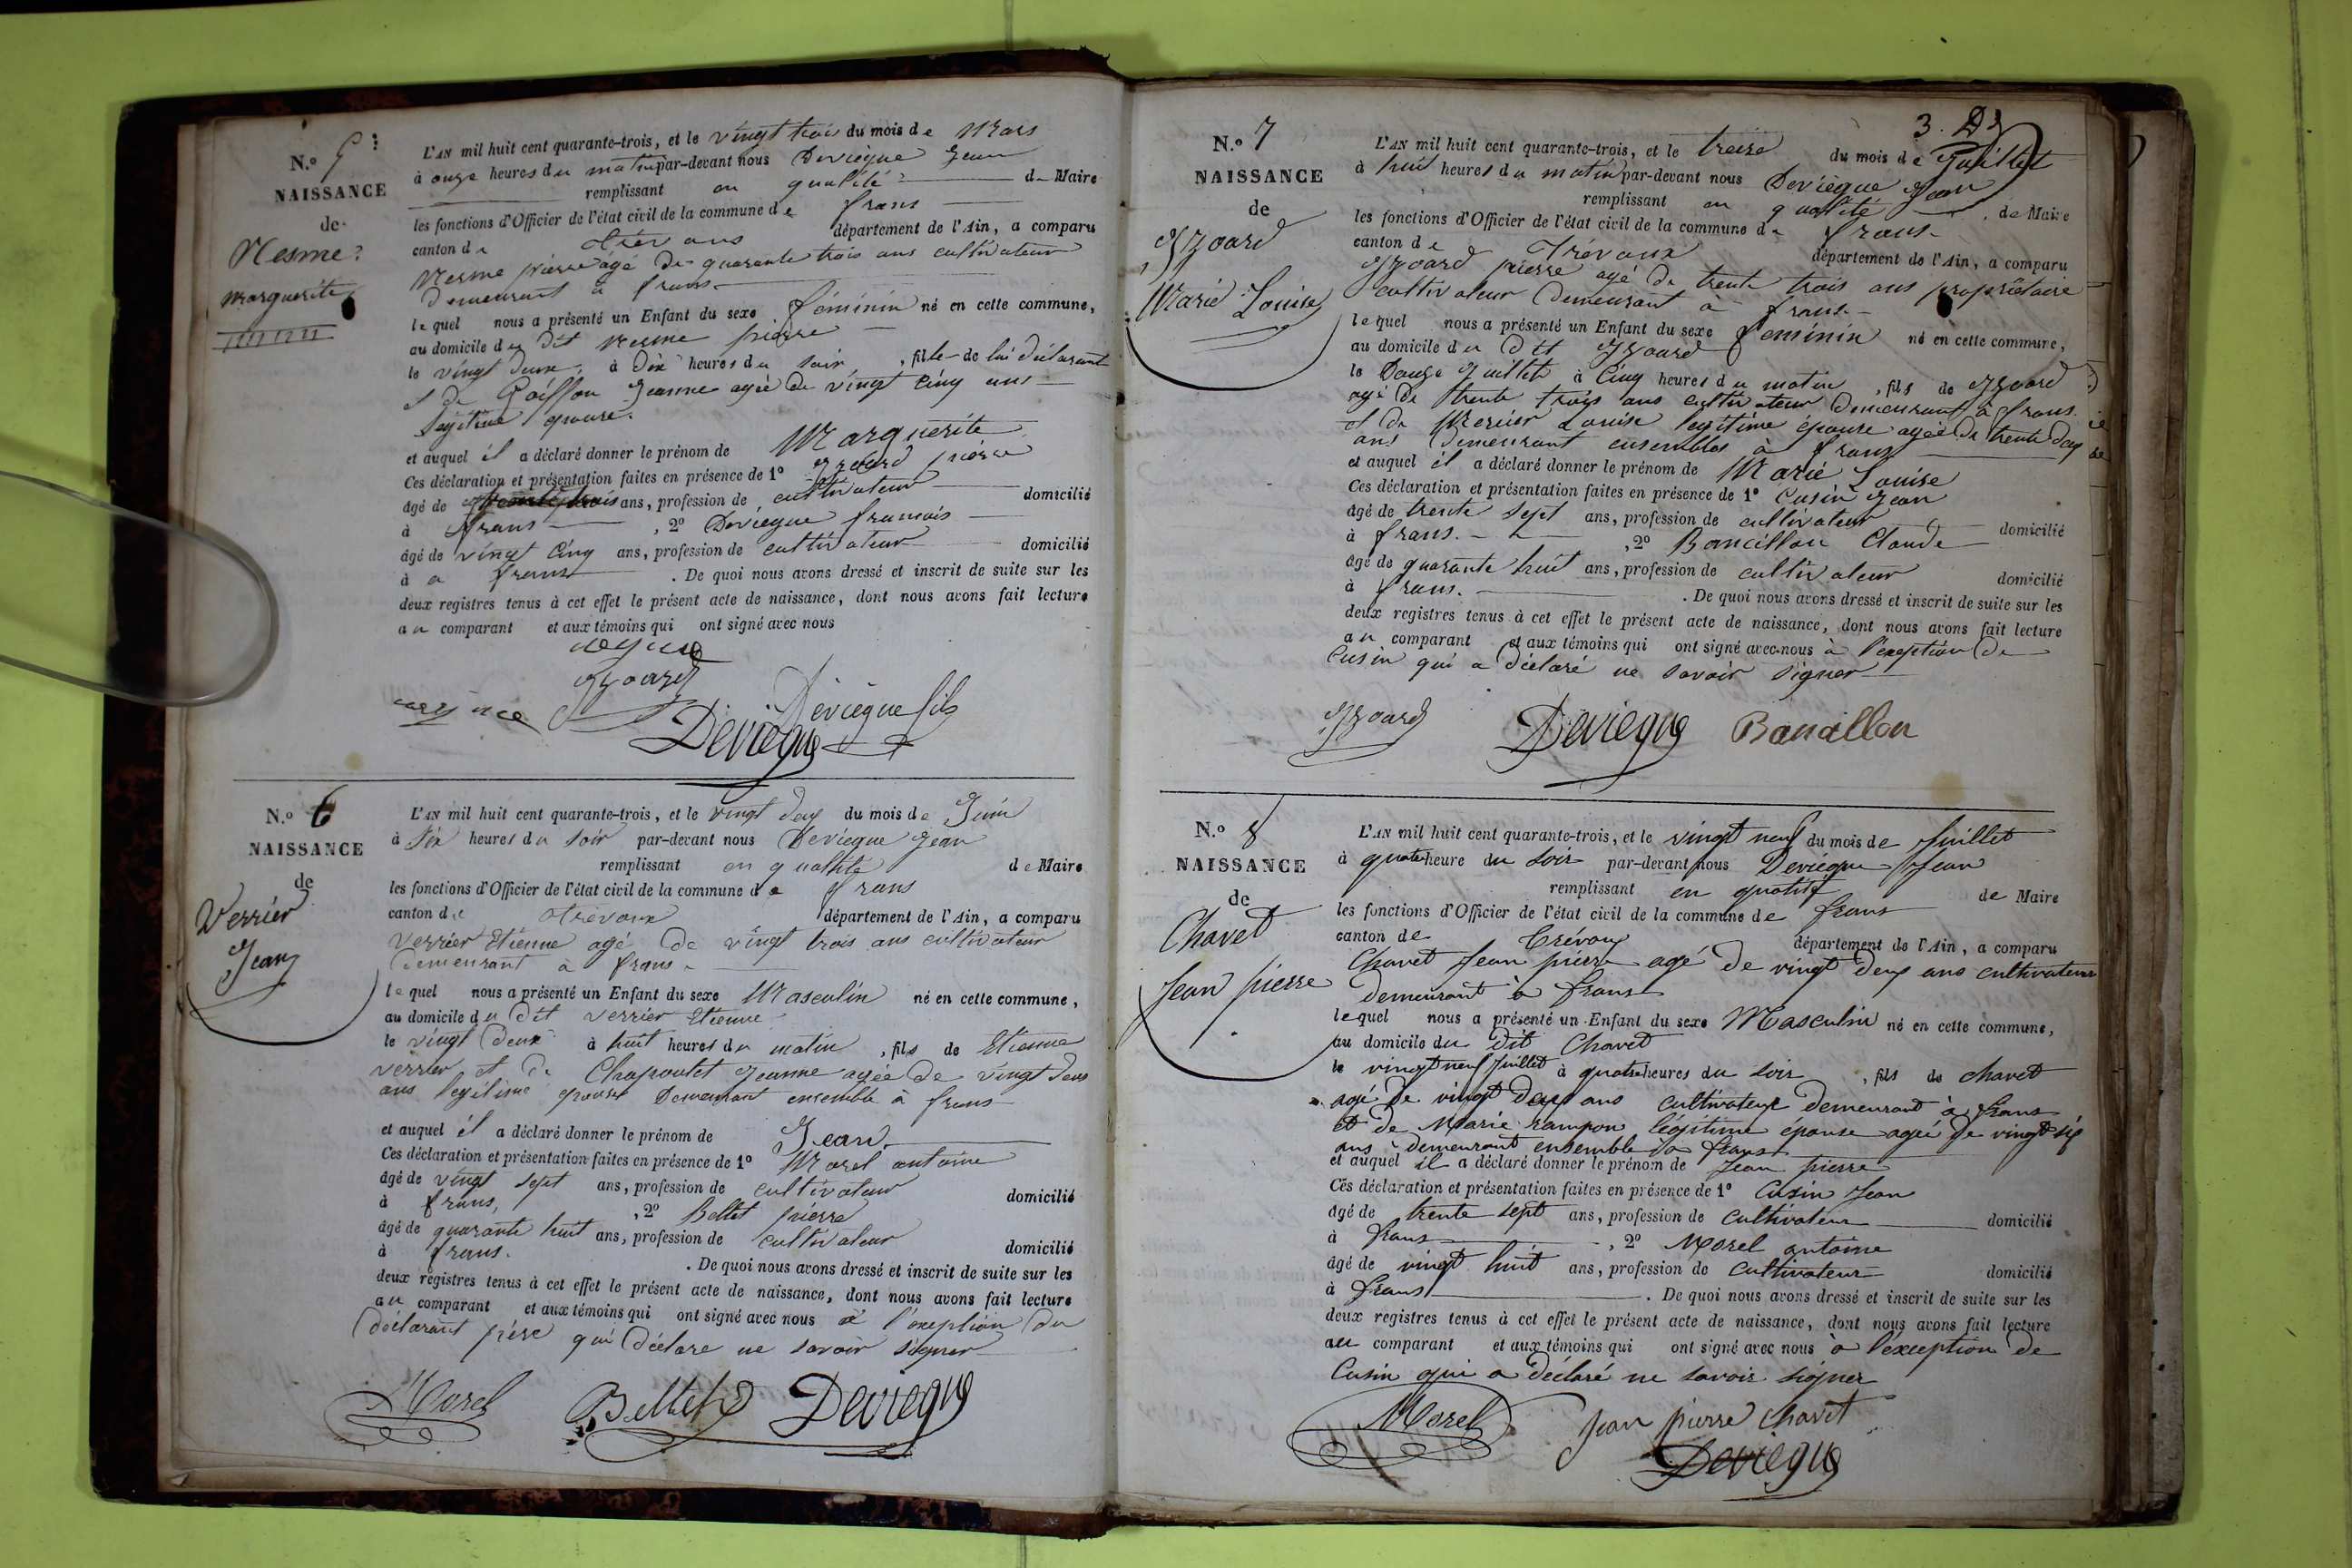 N.o 5
NAISSANCE
de
Nesme
Marguerite
L'AN mil huit cent quarante-trois, et le vingt trois du mois de Mars
à onze heures du matin par-devant nous Deviegue Jean
remplissant en qualité de Maire
les fonctions d'Officier de l'état civil de la commune de frans
canton de Trévoux département de l'Ain, a comparu
Nesme pierre âgé de quarante trois ans cultivateur
Demeurant à frans
lequel nous a présenté un Enfant du sexe féminin né en cette commune,
au domicile du dit Nesme pierre
le vingt deux, à Dix heures du soir, fille de lui déclarant
et de Jeanne agée de vingt Cinq ans
légitime épouse.
et auquel il a déclaré donner le prénom de Marguerite
Ces déclaration et présentation faites en présence de 1° Izoard pierre
âgé de trente trois ans, profession de cultivateur domicilié
à frans, 2° Deviegue francois
âgé de vingt Cinq ans, profession de cultivateur domicilié
à a frans. De quoi nous avons dressé et inscrit de suite sur les
deux registres tenus à cet effet le présent acte de naissance, dont nous avons fait lecture
au comparant et aux témoins qui ont signé avec nous
Izoard
Deviegue fils
Deviegue
N.o 6
NAISSANCE
de
Verrier
Jean
L'AN mil huit cent quarante-trois, et le vingt deux du mois de Juin
à Six heures du soir par-devant nous Deviegue Jean
remplissant en qualité de Maire
les fonctions d'Officier de l'état civil de la commune de frans
canton de Trévoux département de l'Ain, a comparu
Verrier Etienne agé de vingt trois ans cultivateur
Demeurant à frans
lequel nous a présenté un Enfant du sexe Masculin né en cette commune,
au domicile du dit verrier Etienne
le vingt Deux à huit heures du matin, fils de Etienne
verrier et de Chapoutet Jeanne agée de vingt deux
ans légitime épouse Demeurant ensemble à frans
et auquel il a déclaré donner le prénom de Jean
Ces déclaration et présentation faites en présence de 1° Morel antoine
âgé de vingt sept ans, profession de cultivateur domicilié
à frans, 2° Bettet pierre
âgé de quarante huit ans, profession de cultivateur domicilié
à frans. De quoi nous avons dressé et inscrit de suite sur les
deux registres tenus à cet effet le présent acte de naissance, dont nous avons fait lecture
au comparant et aux témoins qui ont signé avec nous à l'exeption du
déclarant père qui Déclare ne savoir signer
Morel Bettet Deviegue
3.
N.o 7
NAISSANCE
de
Izoard
Marie Louise
L'AN mil huit cent quarante-trois, et le treize du mois de Juillet
à huit heures du matin par-devant nous Deviegue Jean
remplissant en qualité de Maire
les fonctions d'Officier de l'état civil de la commune de frans
canton de Trévoux département de l'Ain, a comparu
Izoard pierre agé de trente trois ans propriétaire
cultivateur Demeurant à frans
lequel nous a présenté un Enfant du sexe féminin né en cette commune,
au domicile du dit Izoard
le Douze Juillet à Cinq heures du matin, fils de Izoard
agé de trente trois ans cultivateur Demeurant à frans
et de Mercier Louise légitime épouse agée de trente deux
ans Demeurant ensembles à frans
et auquel il a déclaré donner le prénom de Marie Louise
Ces déclaration et présentation faites en présence de 1° Cusin Jean
âgé de trente sept ans, profession de cultivateur domicilié
à frans. 2° Bancillon Claude
âgé de quarante huit ans, profession de cultivateur domicilié
à frans. De quoi nous avons dressé et inscrit de suite sur les
deux registres tenus à cet effet le présent acte de naissance, dont nous avons fait lecture
au comparant et aux témoins qui ont signé avec nous à l'exeption de
Cusin qui a déclaré ne savoir signer
Izoard Deviegue Bancillon
N.o 8
NAISSANCE
de
Chavet
Jean pierre
L'AN mil huit cent quarante-trois, et le vingt neuf du mois de Juillet
à quatre heure du soir par-devant nous Deviegue Jean
remplissant en qualité de Maire
les fonctions d'Officier de l'état civil de la commune de frans
canton de Trévoux département de l'Ain, a comparu
Chavet Jean pierre agé de vingt deux ans cultivateur
demeurant à frans
lequel nous a présenté un Enfant du sexe Masculin né en cette commune,
au domicile du dit Chavet
le vingt neuf Juillet à quatre heures du soir, fils de chavet
agé de vingt deux ans cultivateur demeurant à frans
et de Marie rampon légitime épouse agée de vingt six
ans demeurant ensemble à frans
et auquel il a déclaré donner le prénom de Jean pierre
Ces déclaration et présentation faites en présence de 1° Cusin Jean
âgé de trente sept ans, profession de cultivateur domicilié
à frans, 2° Morel antoine
âgé de vingt huit ans, profession de cultivateur domicilié
à frans. De quoi nous avons dressé et inscrit de suite sur les
deux registres tenus à cet effet le présent acte de naissance, dont nous avons fait lecture
au comparant et aux témoins qui ont signé avec nous à l'exception de
Cusin qui a déclaré ne savoir signer
Morel Jean pierre chavet
Deviegue